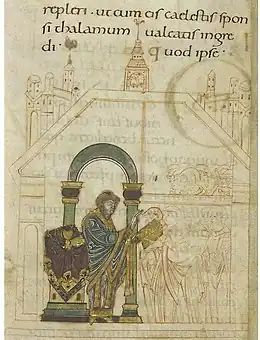 repleri . ut cum eis caelestis spon
si thalamum ualeatis ingre
di . quod ipse